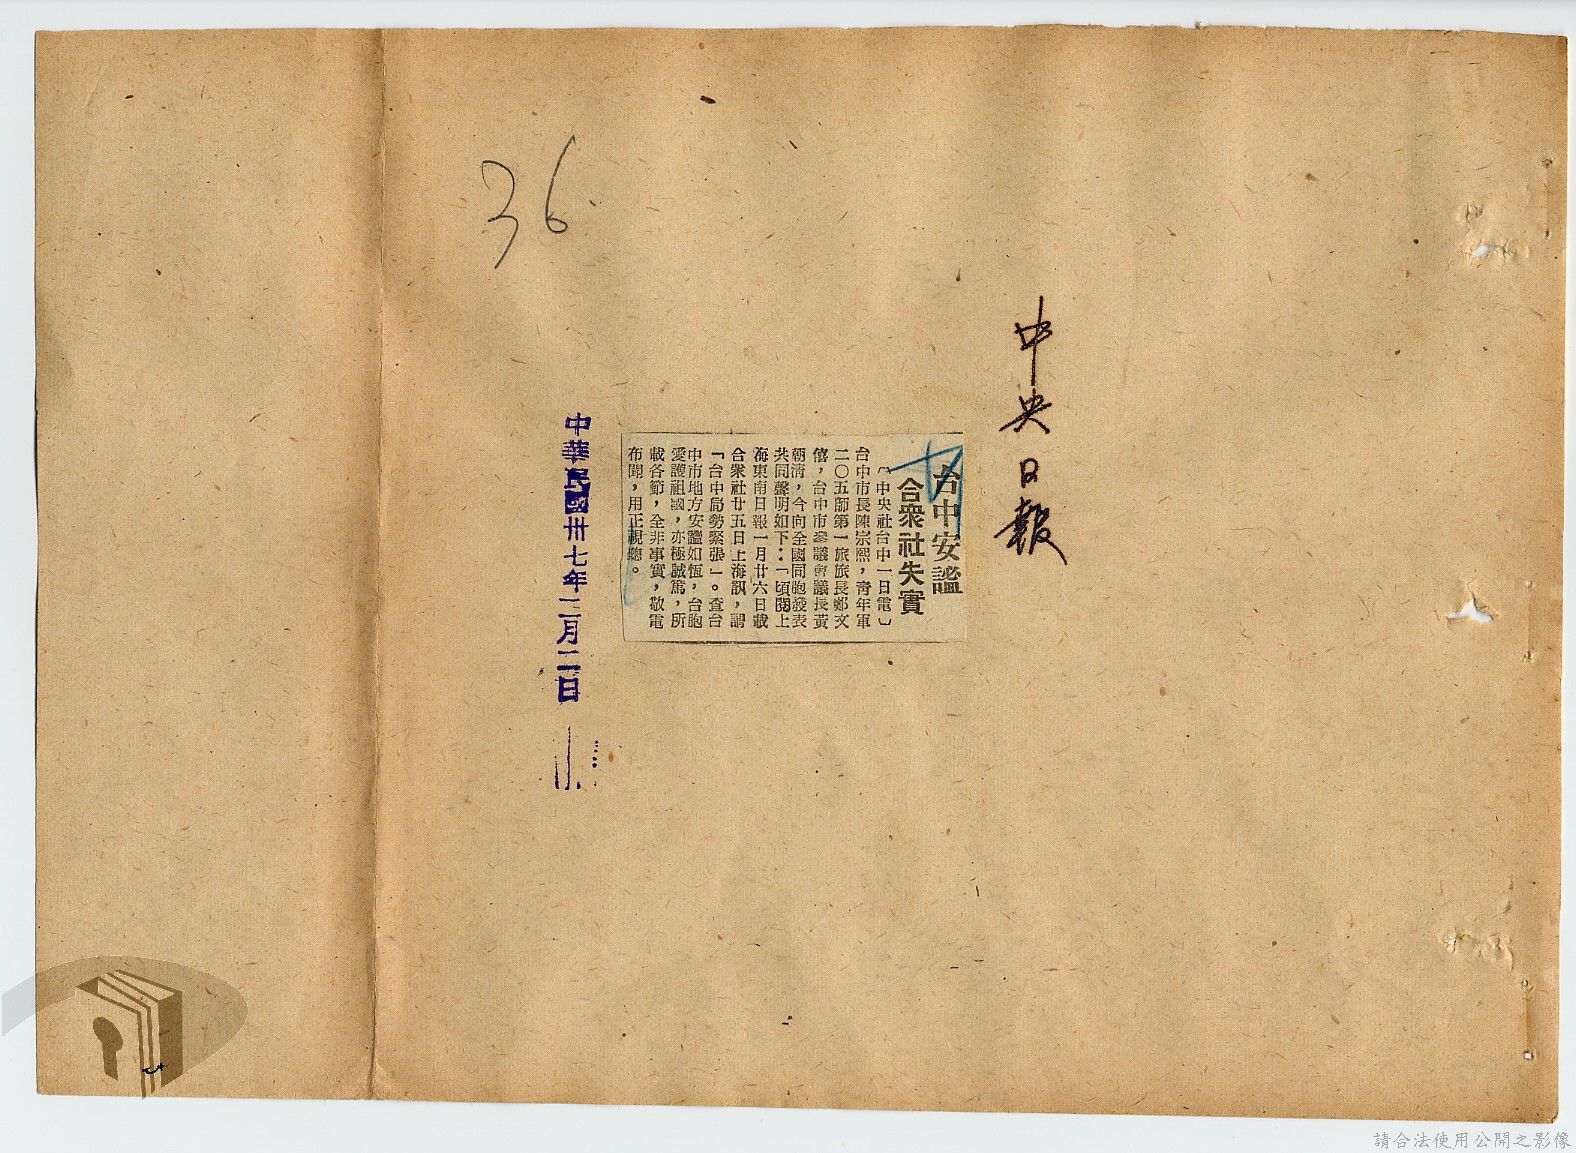 36.
中央日報
台中安謐
合衆社失實
〔中央社台中一日電〕
台中市長陳宗熙，靑年軍
二〇五師第一旅旅長鄭文
僖，台中市參議會議長黃
朝淸，今向全國同胞發表
共同聲明如下：「頃閱上
海東南日報一月廿六日載
合衆社廿五日上海訊，謂
「台中局勢緊張」。查台
中市地方安謐如恆，台胞
愛護祖國，亦極誠篤，所
載各節，全非事實，敬電
布聞，用正視聽。
中華民國卅七年二月二日
請合法使用公開之影像